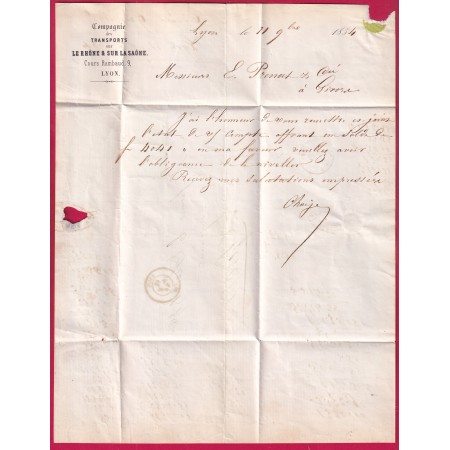 Compagnie
des
TRANSPORTS
sur
LE RHÔNE & SUR LA SAÔNE.
Cours Rambaud, 9.
LYON.
Lyon le 11 9bre 1854
Messieurs E. & Cie
à Givors
J'ai l'honneur de vous remettre ci joint
l'extrait de v/ Compte offrant un Solde de
f 4041 " en ma faveur veuillez avoir
l'obligeance de le niveller
Recevez mes Salutations empressées